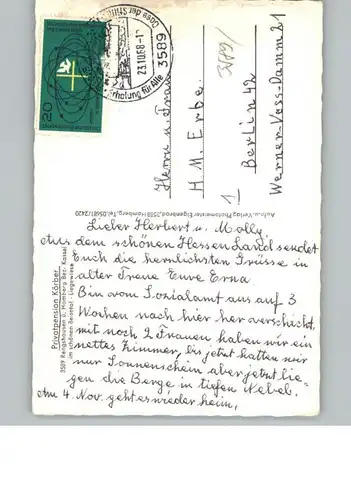 Lieber Herbert u. Molly,
Aus dem schönen Hessen Land sendet
Euch die herrlichsten Grüsse in
alter Treue Eure Erna
Bin vom Sozialamt aus auf 3
Wochen nach hier her verschickt,
mit noch 2 Frauen haben wir ein
nettes Zimmer, bis jetzt hatten wir
nur Sonnenschein aber jetzt lie-
gen die Berge in tiefen Nebel.
Am 4. Nov. geht es wieder heim,
Herrn u. Frau
H. M. Erbe
1 Berlin 42
Werner-Voss-Damm 21
3589
23.10.68-1
Oase der Stille
Erholung für Alle
20
3589/
Privatpension Körber
3589 Rengshausen ü. Homberg Bez. Kassel
im schönen Beisetal - Liegewiese
Auto- u. Verlag Photomeister Eigenbrod, 3588 Homberg, Tel. 05681/2420